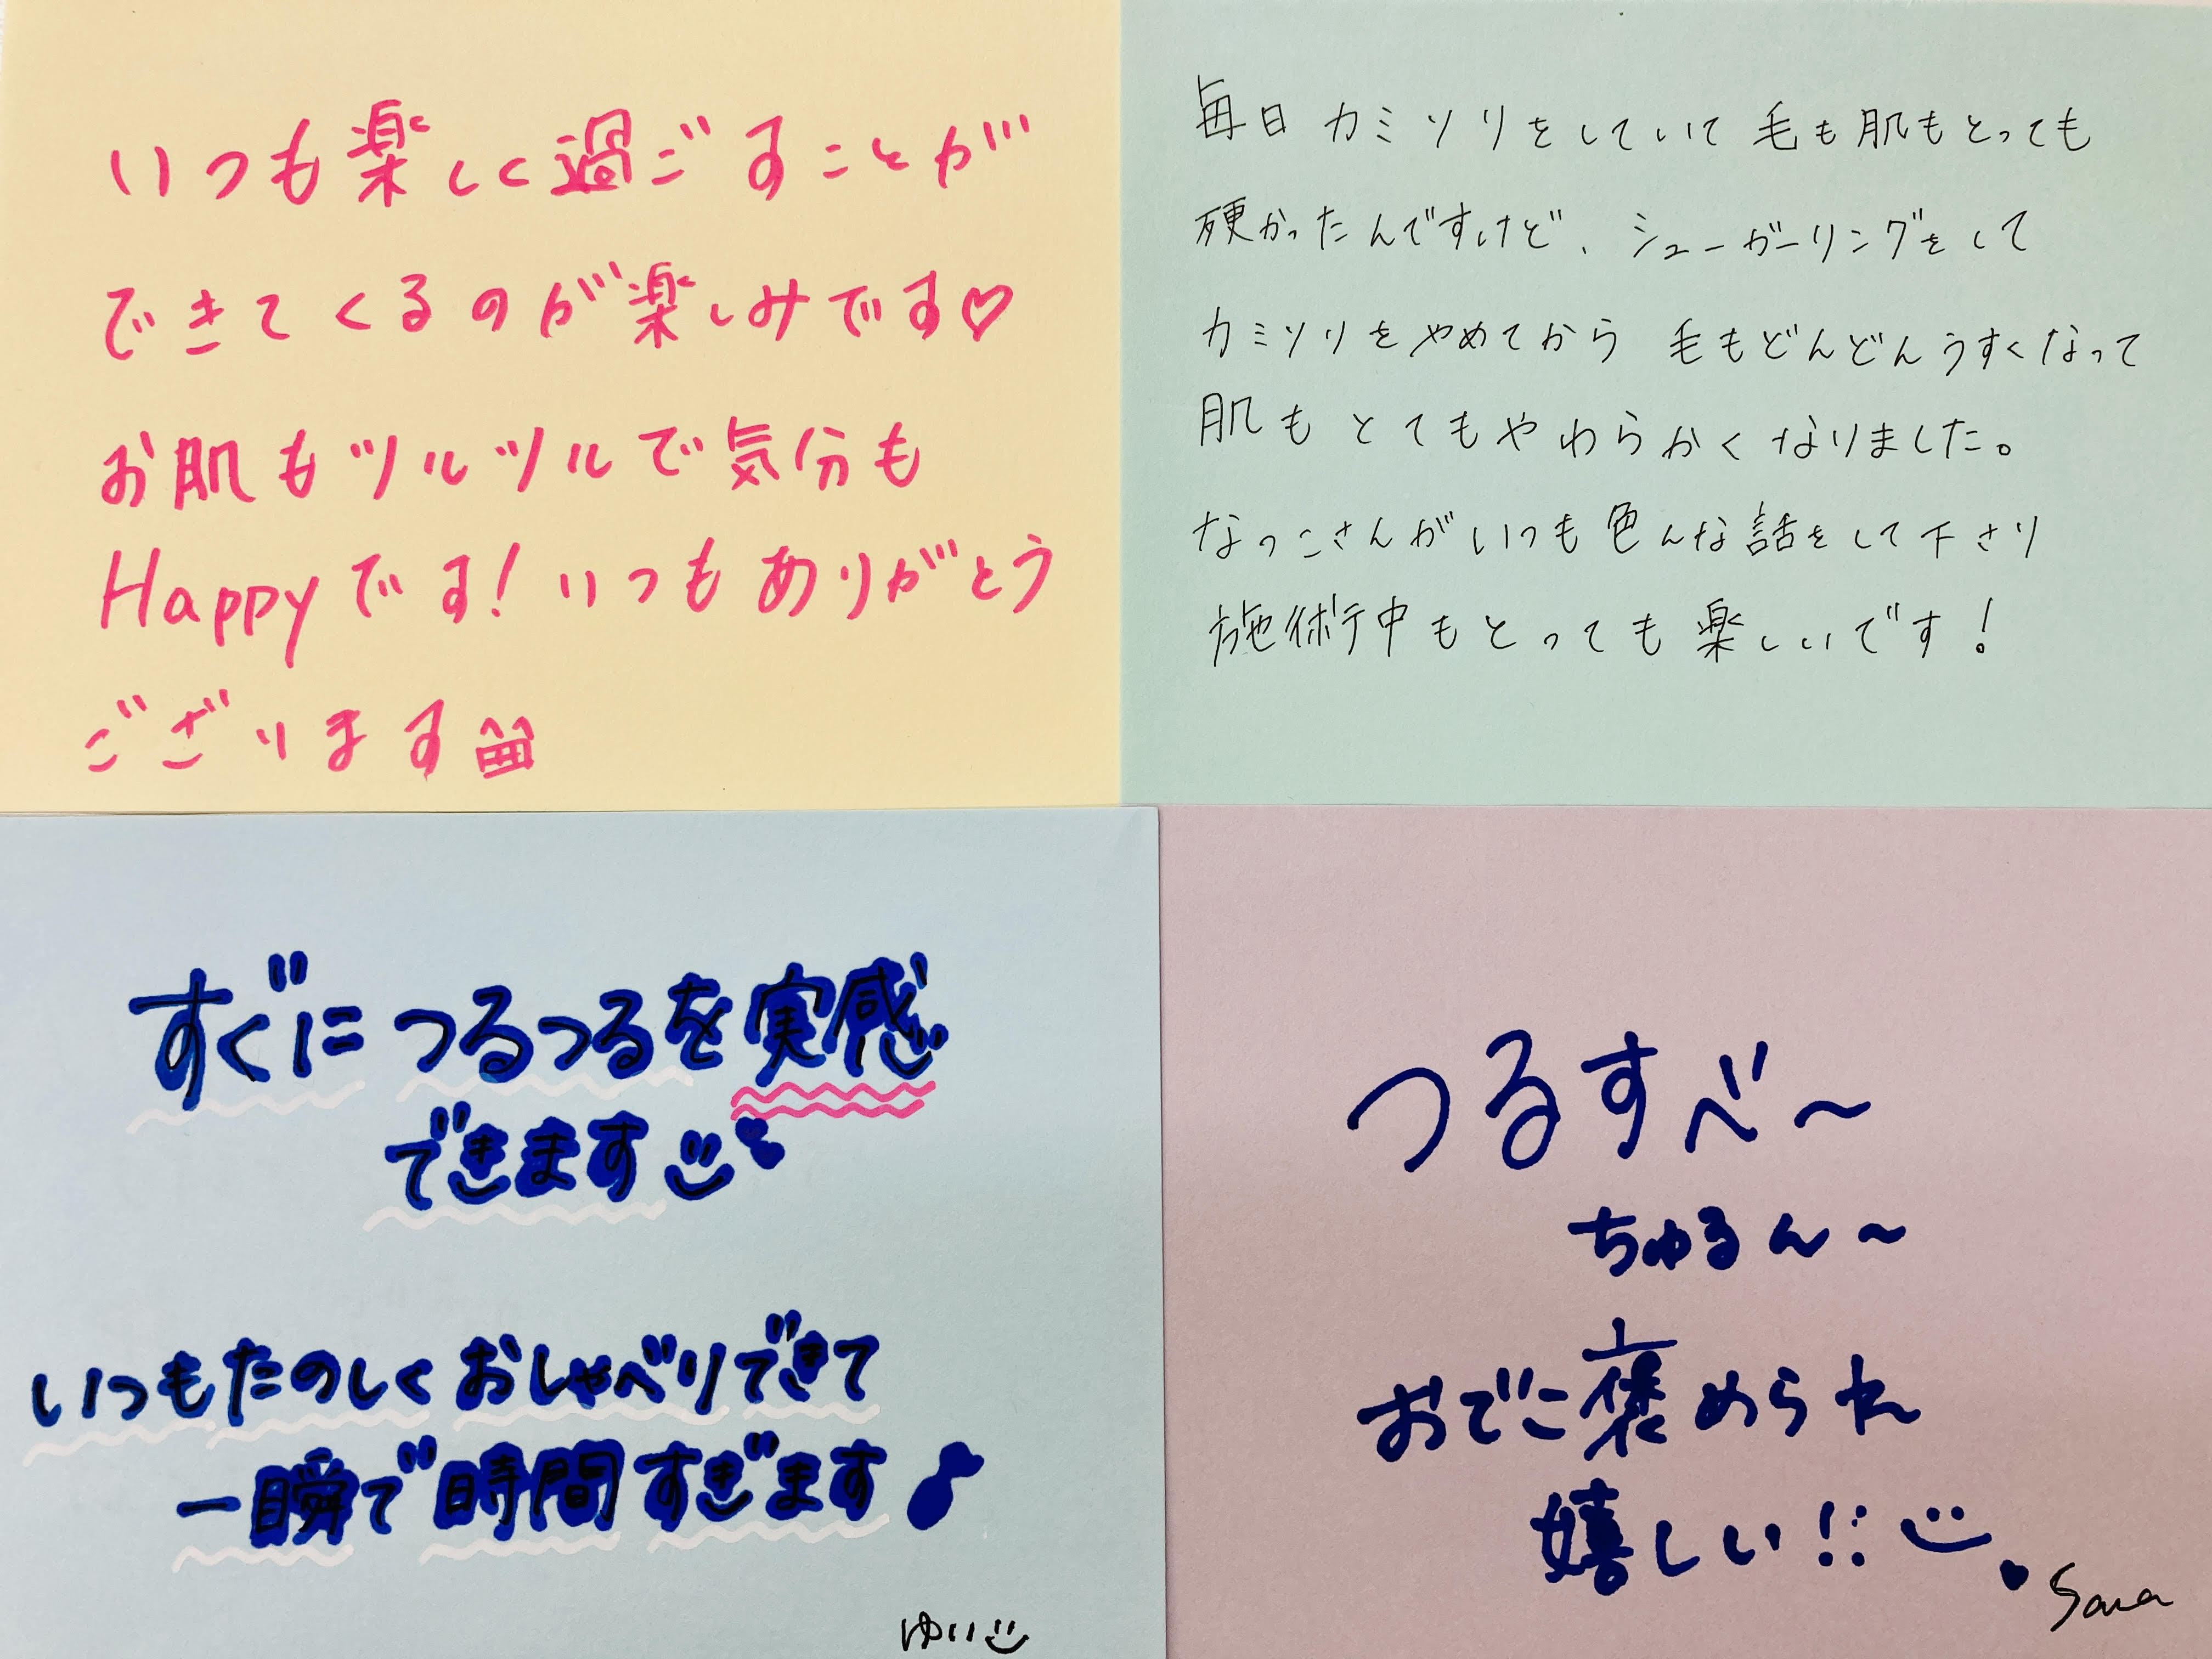 いつも楽しく過ごすことが
できてくるのが楽しみです♡
お肌もツルツルで気分も
Happyです！いつもありがとう
ございます
毎日カミソリをしていて毛も肌もとっても
硬かったんですけど、シューガーリングをして
カミソリをやめてから毛もどんどんうすくなって
肌もとてもやわらかくなりました。
なっこさんがいつも色んな話をして下さり
施術中もとっても楽しいです！
すぐにつるつるを実感
できます
いつもたのしくおしゃべりできて
一瞬で時間すぎます♪
ゆい
つるすべ〜
ちゅるん〜
おでこ褒められ
嬉しい!!
Sara